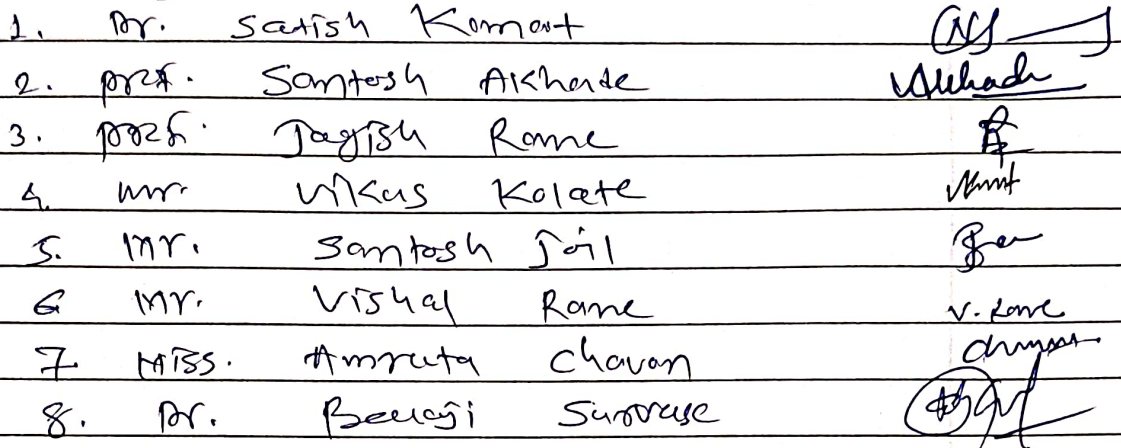 1. Dr. Satish Kamat
2. Prof. Santosh Akhade
3. Prof. Jagish Rane
4. Mr. Vikas Kolate
5. Mr. Santosh Joil
6 Mr. Vishal Rane V. Rane
7. Miss. Amruta Chavan
8. Dr. Survase